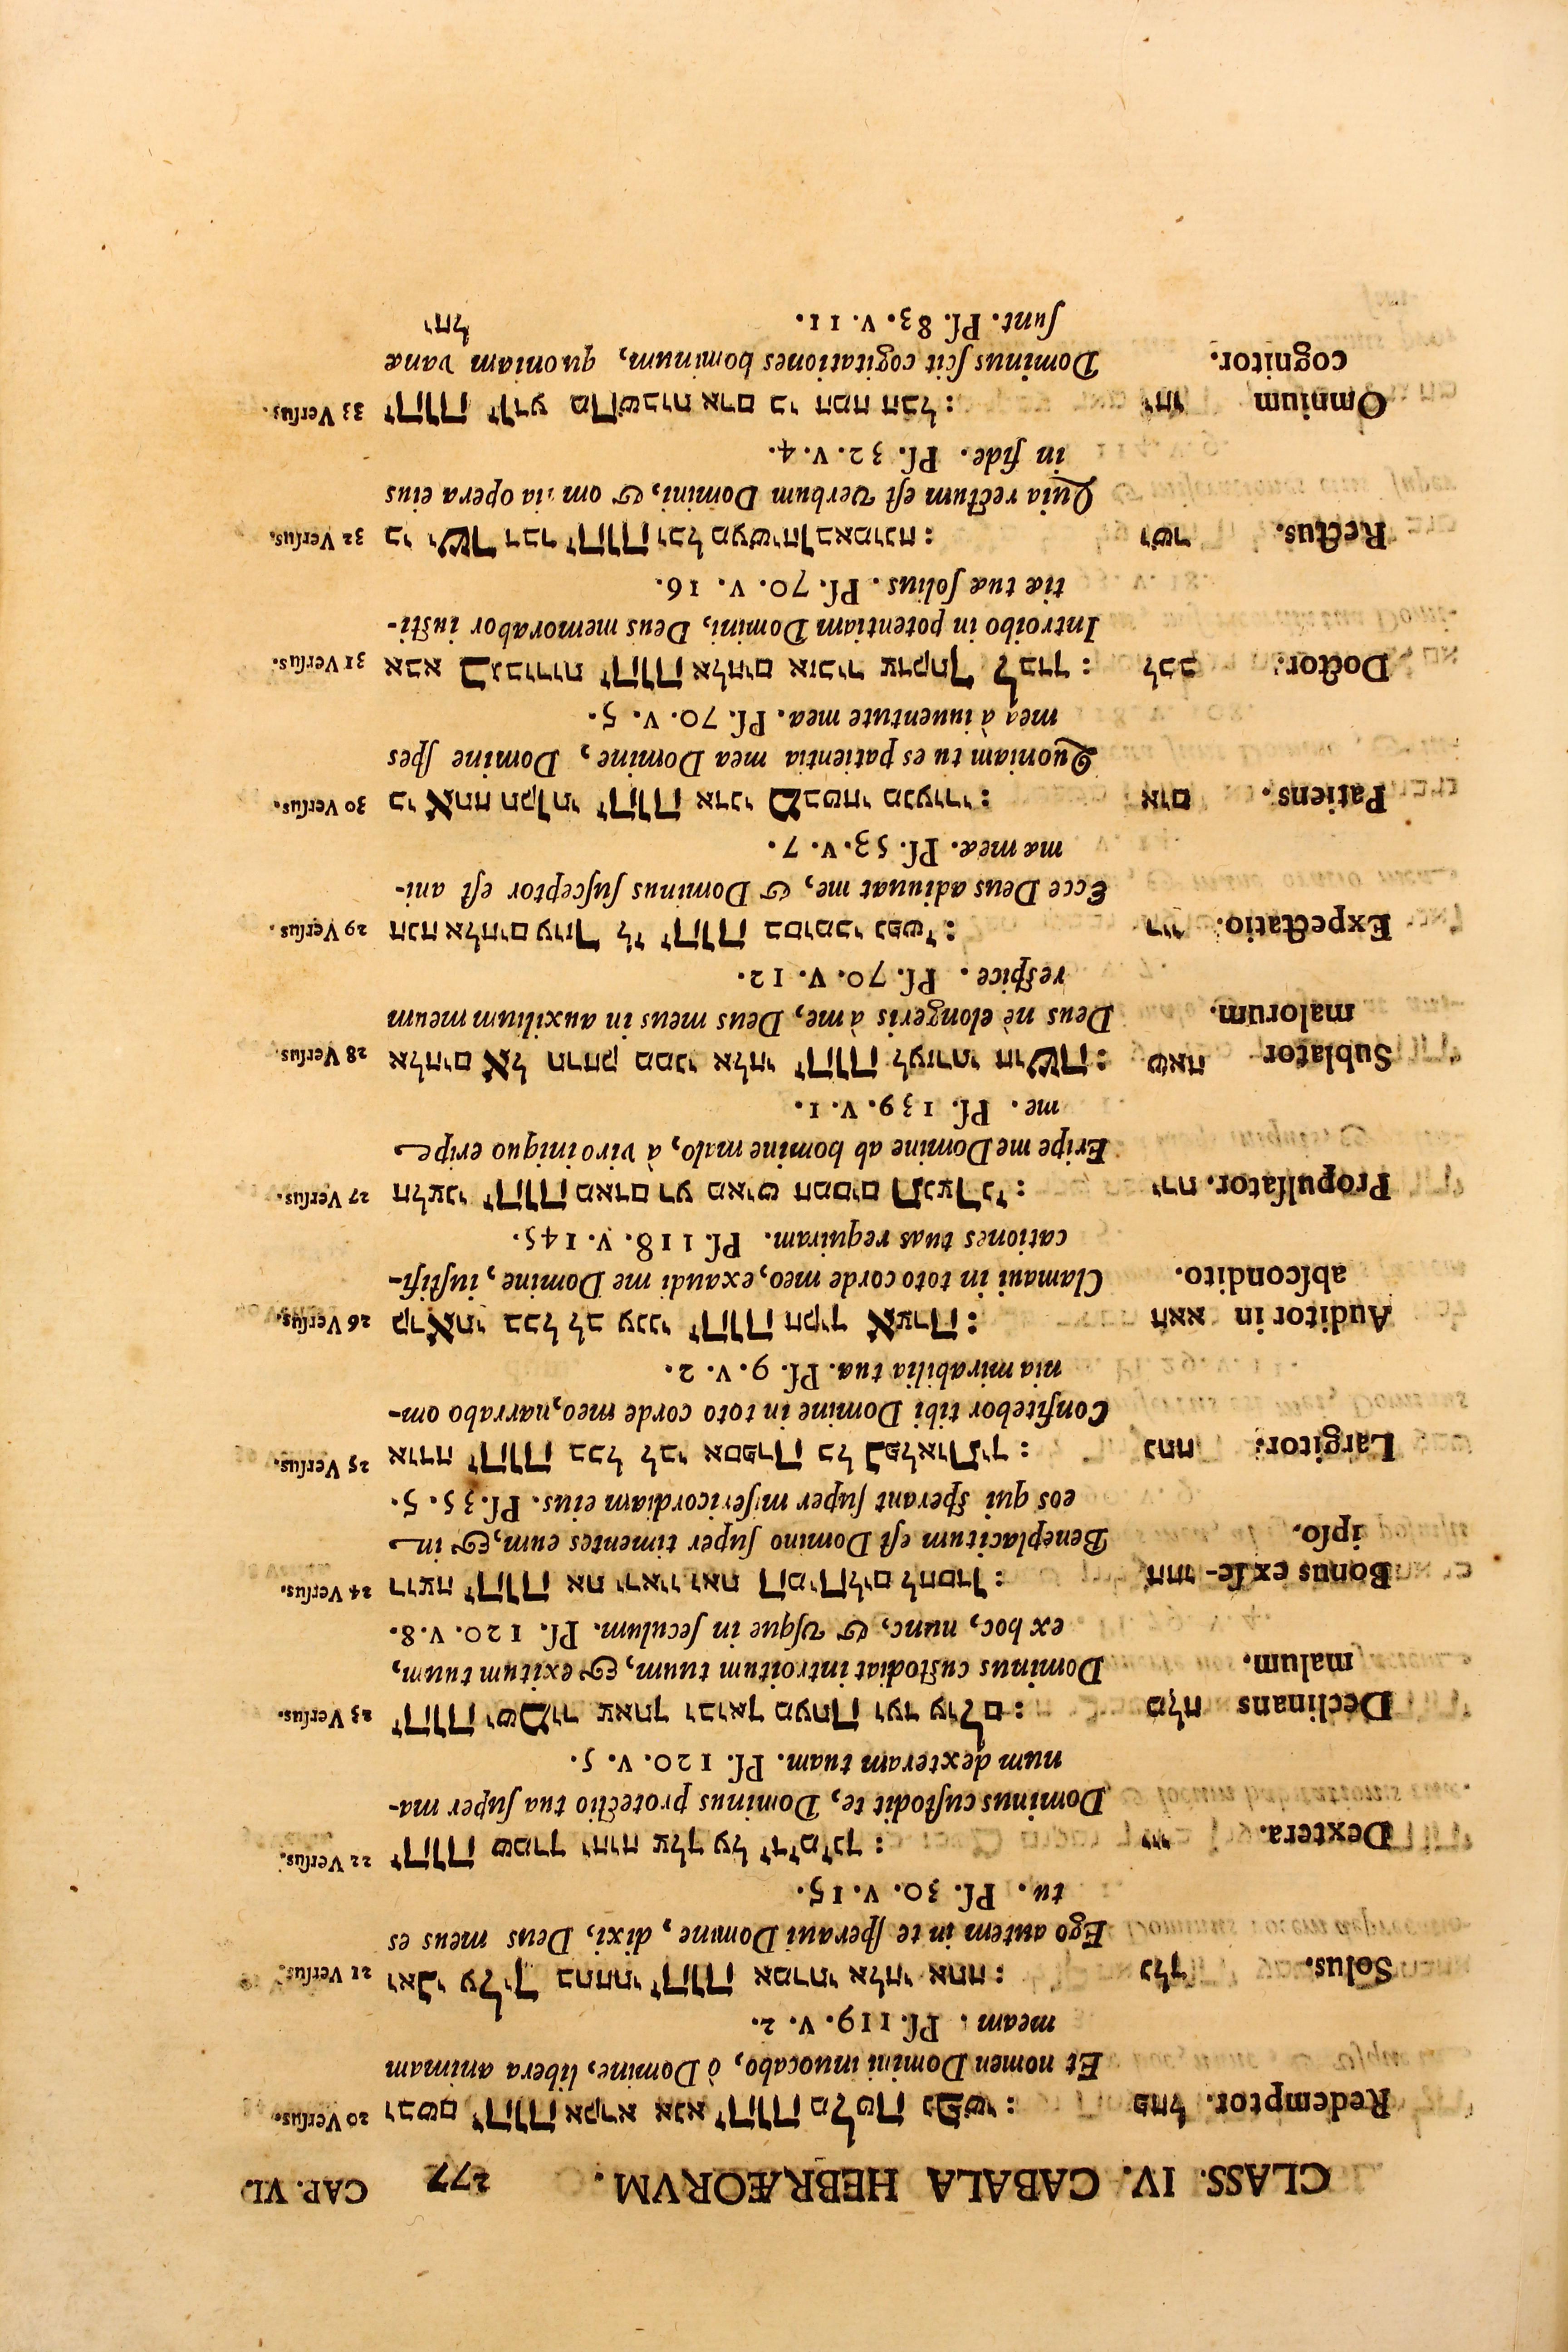 CLASS. IV. CABALA HEBRÆORVM. 277 CAP. VI.
Redemptor. פהל ובשם יהוה אקרא אנא יהוה מלטה נפשי: 20 Versus.
Et nomen Domini inuocabo, ò Domine, libera animam
meam. Ps. 119. v. 2.
Solus. נלך ואני עליך בטחתי יהוה אמרתי אלהי אתה: 21 Versus.
Ego autem in te speraui Domine, dixi, Deus meus es
tu. Ps. 30. v. 15.
Dextera. ייי יהוה שמרך יהוה צלך על יד ימינך: 22 Versus.
Dominus custodit te, Dominus protectio tua super ma-
num dexteram tuam. Ps. 120. v. 5.
Declinans malum. מלה יהוה ישמור צאתך ובואך מעתה ועד עולם: 23 Versus.
Dominus custodiat introitum tuum, & exitum tuum,
ex hoc, nunc, & vsque in seculum. Ps. 120. v. 8.
Bonus ex se-ipso. חהו רוצה יהוה את יראיו ואת המיחלים לחסדו: 24 Versus.
Beneplacitum est Domino super timentes eum, & in
eos qui sperant super misericordiam eius. Ps. 35. 5.
Largitor. נתה אודה יהוה בכל לבי אספרה כל נפלאותיך: 25 Versus.
Confitebor tibi Domine in toto corde meo, narrabo om-
nia mirabilia tua. Ps. 9. v. 2.
Auditor in abscondito. האא קראתי בכל לב ענני יהוה חקיך אצרה: 26 Versus.
Clamaui in toto corde meo, exaudi me Domine, iustifi-
cationes tuas requiram. Ps. 118. v. 145.
Propulsator. ירת חלצני יהוה מאדם רע מאיש חמסים תנצרני: 27 Versus.
Eripe me Domine ab homine malo, à viro iniquo eripe
me. Ps. 139. v. 1.
Sublator malorum. שאה אלהים אל תרחק ממני אלהי יהוה לעזרתי חושה: 28 Versus.
Deus nè elongeris à me, Deus meus in auxilium meum
respice. Ps. 70. v. 12.
Expectatio. ריי הנה אלהים עוזר לי יהוה בסומכי נפשי: 29 Versus.
Ecce Deus adiuuat me, & Dominus susceptor est ani-
mæ meæ. Ps. 53. v. 7.
Patiens. אום כי אתה תקותי יהוה אדני מבטחי מנעורי: 30 Versus.
Quoniam tu es patientia mea Domine, Domine spes
mea à iuuentute mea. Ps. 70. v. 5.
Doctor. לכב אבא בגבורות יהוה אלהים אזכיר צדקתך לבדך: 31 Versus.
Introibo in potentiam Domini, Deus memorabor iusti-
tiæ tuæ solius. Ps. 70. v. 16.
Rectus. ושר כי ישר דבר יהוה וכל מעשיהו באמונה: 32 Versus.
Quia rectum est verbum Domini, & omnia opera eius
in fide. Ps. 32. v. 4.
Omnium cognitor. יחו יהוה יודע מחשבות אדם כי המה הבל: 33 Versus.
Dominus scit cogitationes hominum, quoniam vanæ
sunt. Ps. 83. v. 11.
יחל